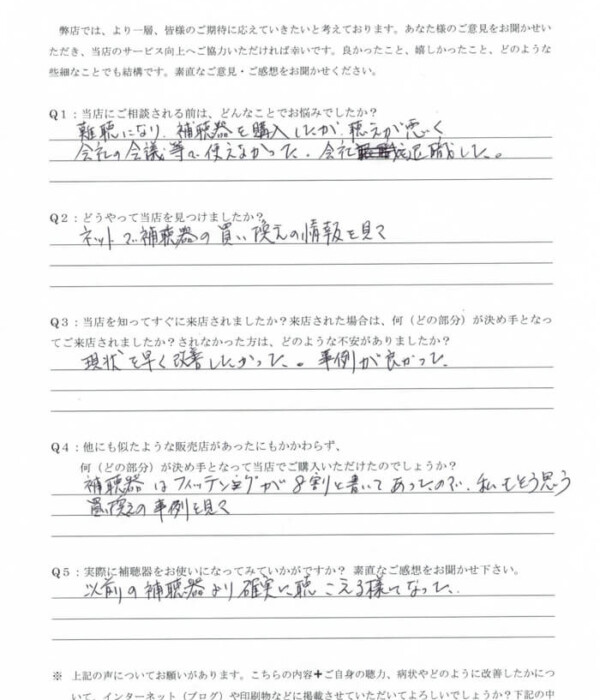 弊店では、より一層、皆様のご期待に応えていきたいと考えております。あなた様のご意見をお聞かせい
ただき、当店のサービス向上へご協力いただければ幸いです。良かったこと、嬉しかったこと、どのような
些細なことでも結構です。素直なご意見・ご感想をお聞かせください。
Q1：当店にご相談される前は、どんなことでお悩みでしたか？
難聴になり、補聴器を購入したが、聴えが悪く
会社の会議等で使えなかった。会社を退職した。
Q2：どうやって当店を見つけましたか？
ネットで補聴器の買い換えの情報を見て
Q3：当店を知ってすぐに来店されましたか？来店された場合は、何（どの部分）が決め手となっ
てご来店されましたか？されなかった方は、どのような不安がありましたか？
現状を早く改善したかった。。事例が良かった。
Q4：他にも似たような販売店があったにもかかわらず、
何（どの部分）が決め手となって当店でご購入いただけたのでしょうか？
補聴器はフィッティングが8割と書いてあったので、私もそう思う
買い換えの事例を見て
Q5：実際に補聴器をお使いになってみていかがですか？ 素直なご感想をお聞かせ下さい。
以前の補聴器より確実に聴こえる様になった。
※ 上記の声についてお願いがあります。こちらの内容＋ご自身の聴力、病状やどのように改善したかにつ
いて、インターネット（ブログ）や印刷物などに掲載させていただいてよろしいでしょうか？下記の中